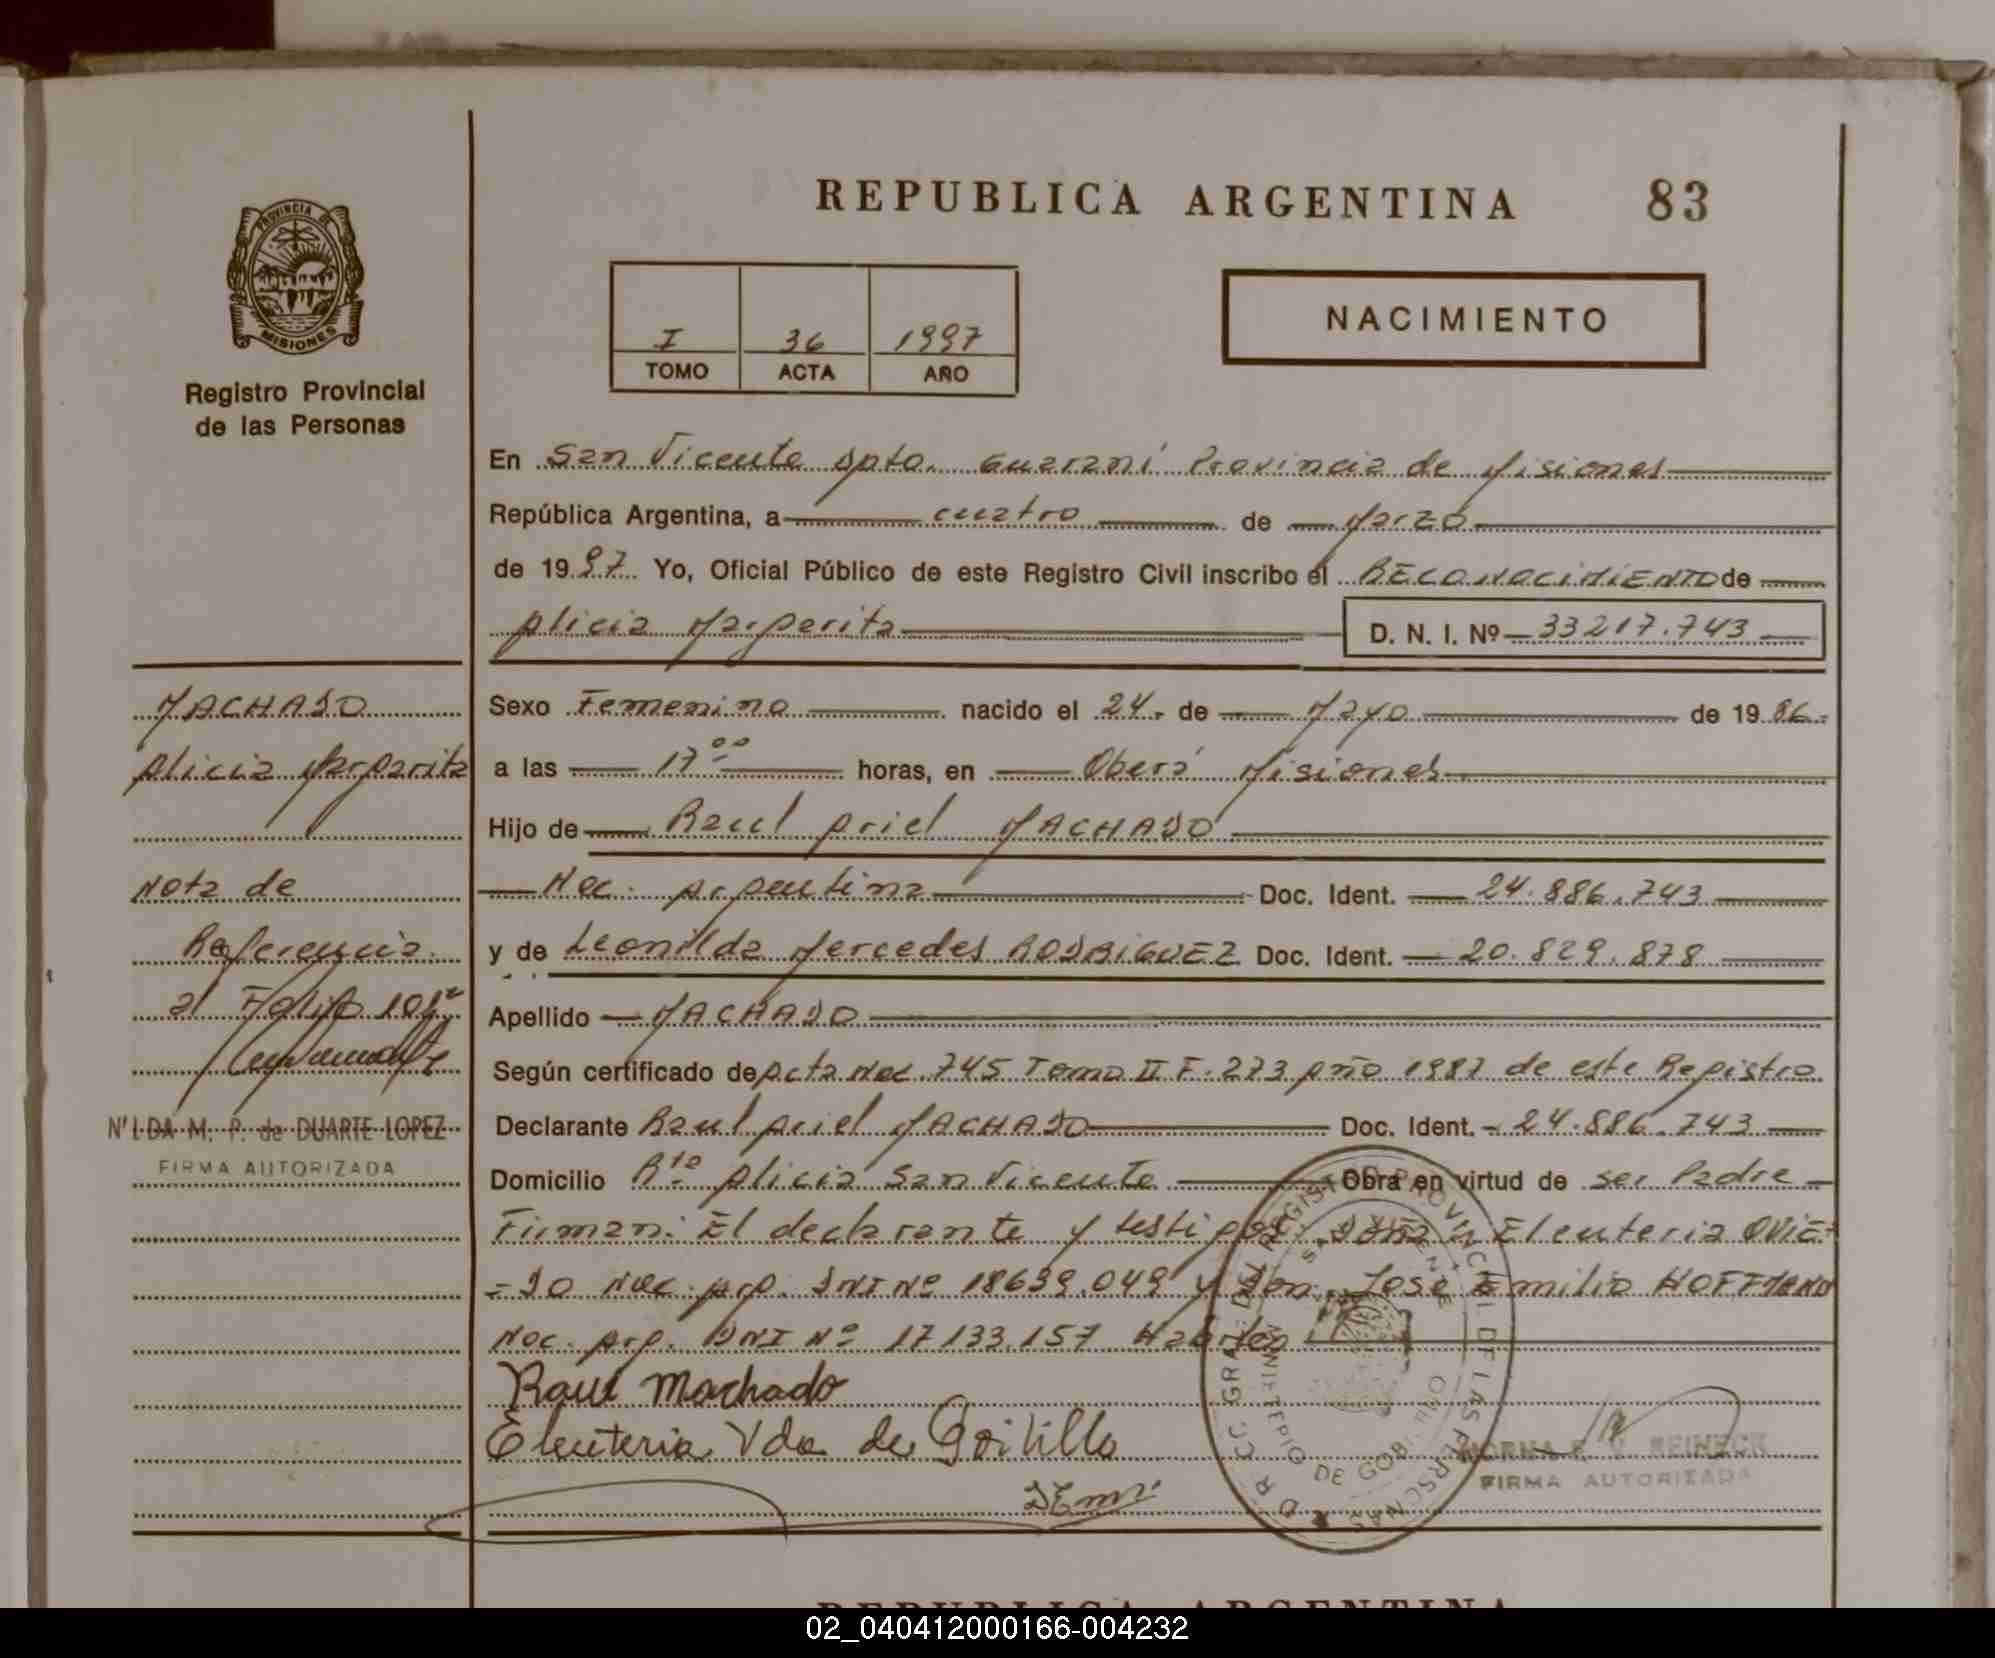 REPUBLICA ARGENTINA 83
PROVINCIA DE
MISIONES
Registro Provincial
de las Personas
I 36 1997
TOMO ACTA AÑO
NACIMIENTO
En San Vicente Dpto. Guaraní Provincia de Misiones
República Argentina, a cuatro de Marzo
de 1997 Yo, Oficial Público de este Registro Civil inscribo el RECONOCIMIENTO de
Alicia Margarita D. N. I. Nº 33217.743
MACHADO
Alicia Margarita
Nota de
Referencia
al Folio
NILDA M. P. de DUARTE LOPEZ
FIRMA AUTORIZADA
Sexo Femenino nacido el 24 de Mayo de 1986
a las 17 00 horas, en Oberá Misiones
Hijo de Raul Ariel MACHADO
Nac. Argentina Doc. Ident. 24.886.743
y de Leonilda Mercedes RODRIGUEZ Doc. Ident. 20.829.878
Apellido MACHADO
Según certificado de Acta Nac. 745 Tomo II F. 273 Año 1987 de este Registro
Declarante Raul Ariel MACHADO Doc. Ident. 24.886.743
Domicilio Bº Alicia San Vicente Obra en virtud de ser Padre
Firman: El declarante y testigos: Doña Eleuteria OVIE-
=DO Nac. Arg. DNI Nº 18639.049 y Don José Emilio HOFFMANN
Nac. Arg. DNI Nº 17133.157 Habiles
Raul Machado
Eleuteria Vda de
REINECK
FIRMA AUTORIZADA
REGISTRO PROVINCIAL DE LAS PERSONAS
SAN VICENTE
MINISTERIO DE GOBIERNO
REPUBLICA ARGENTINA
02_040412000166-004232